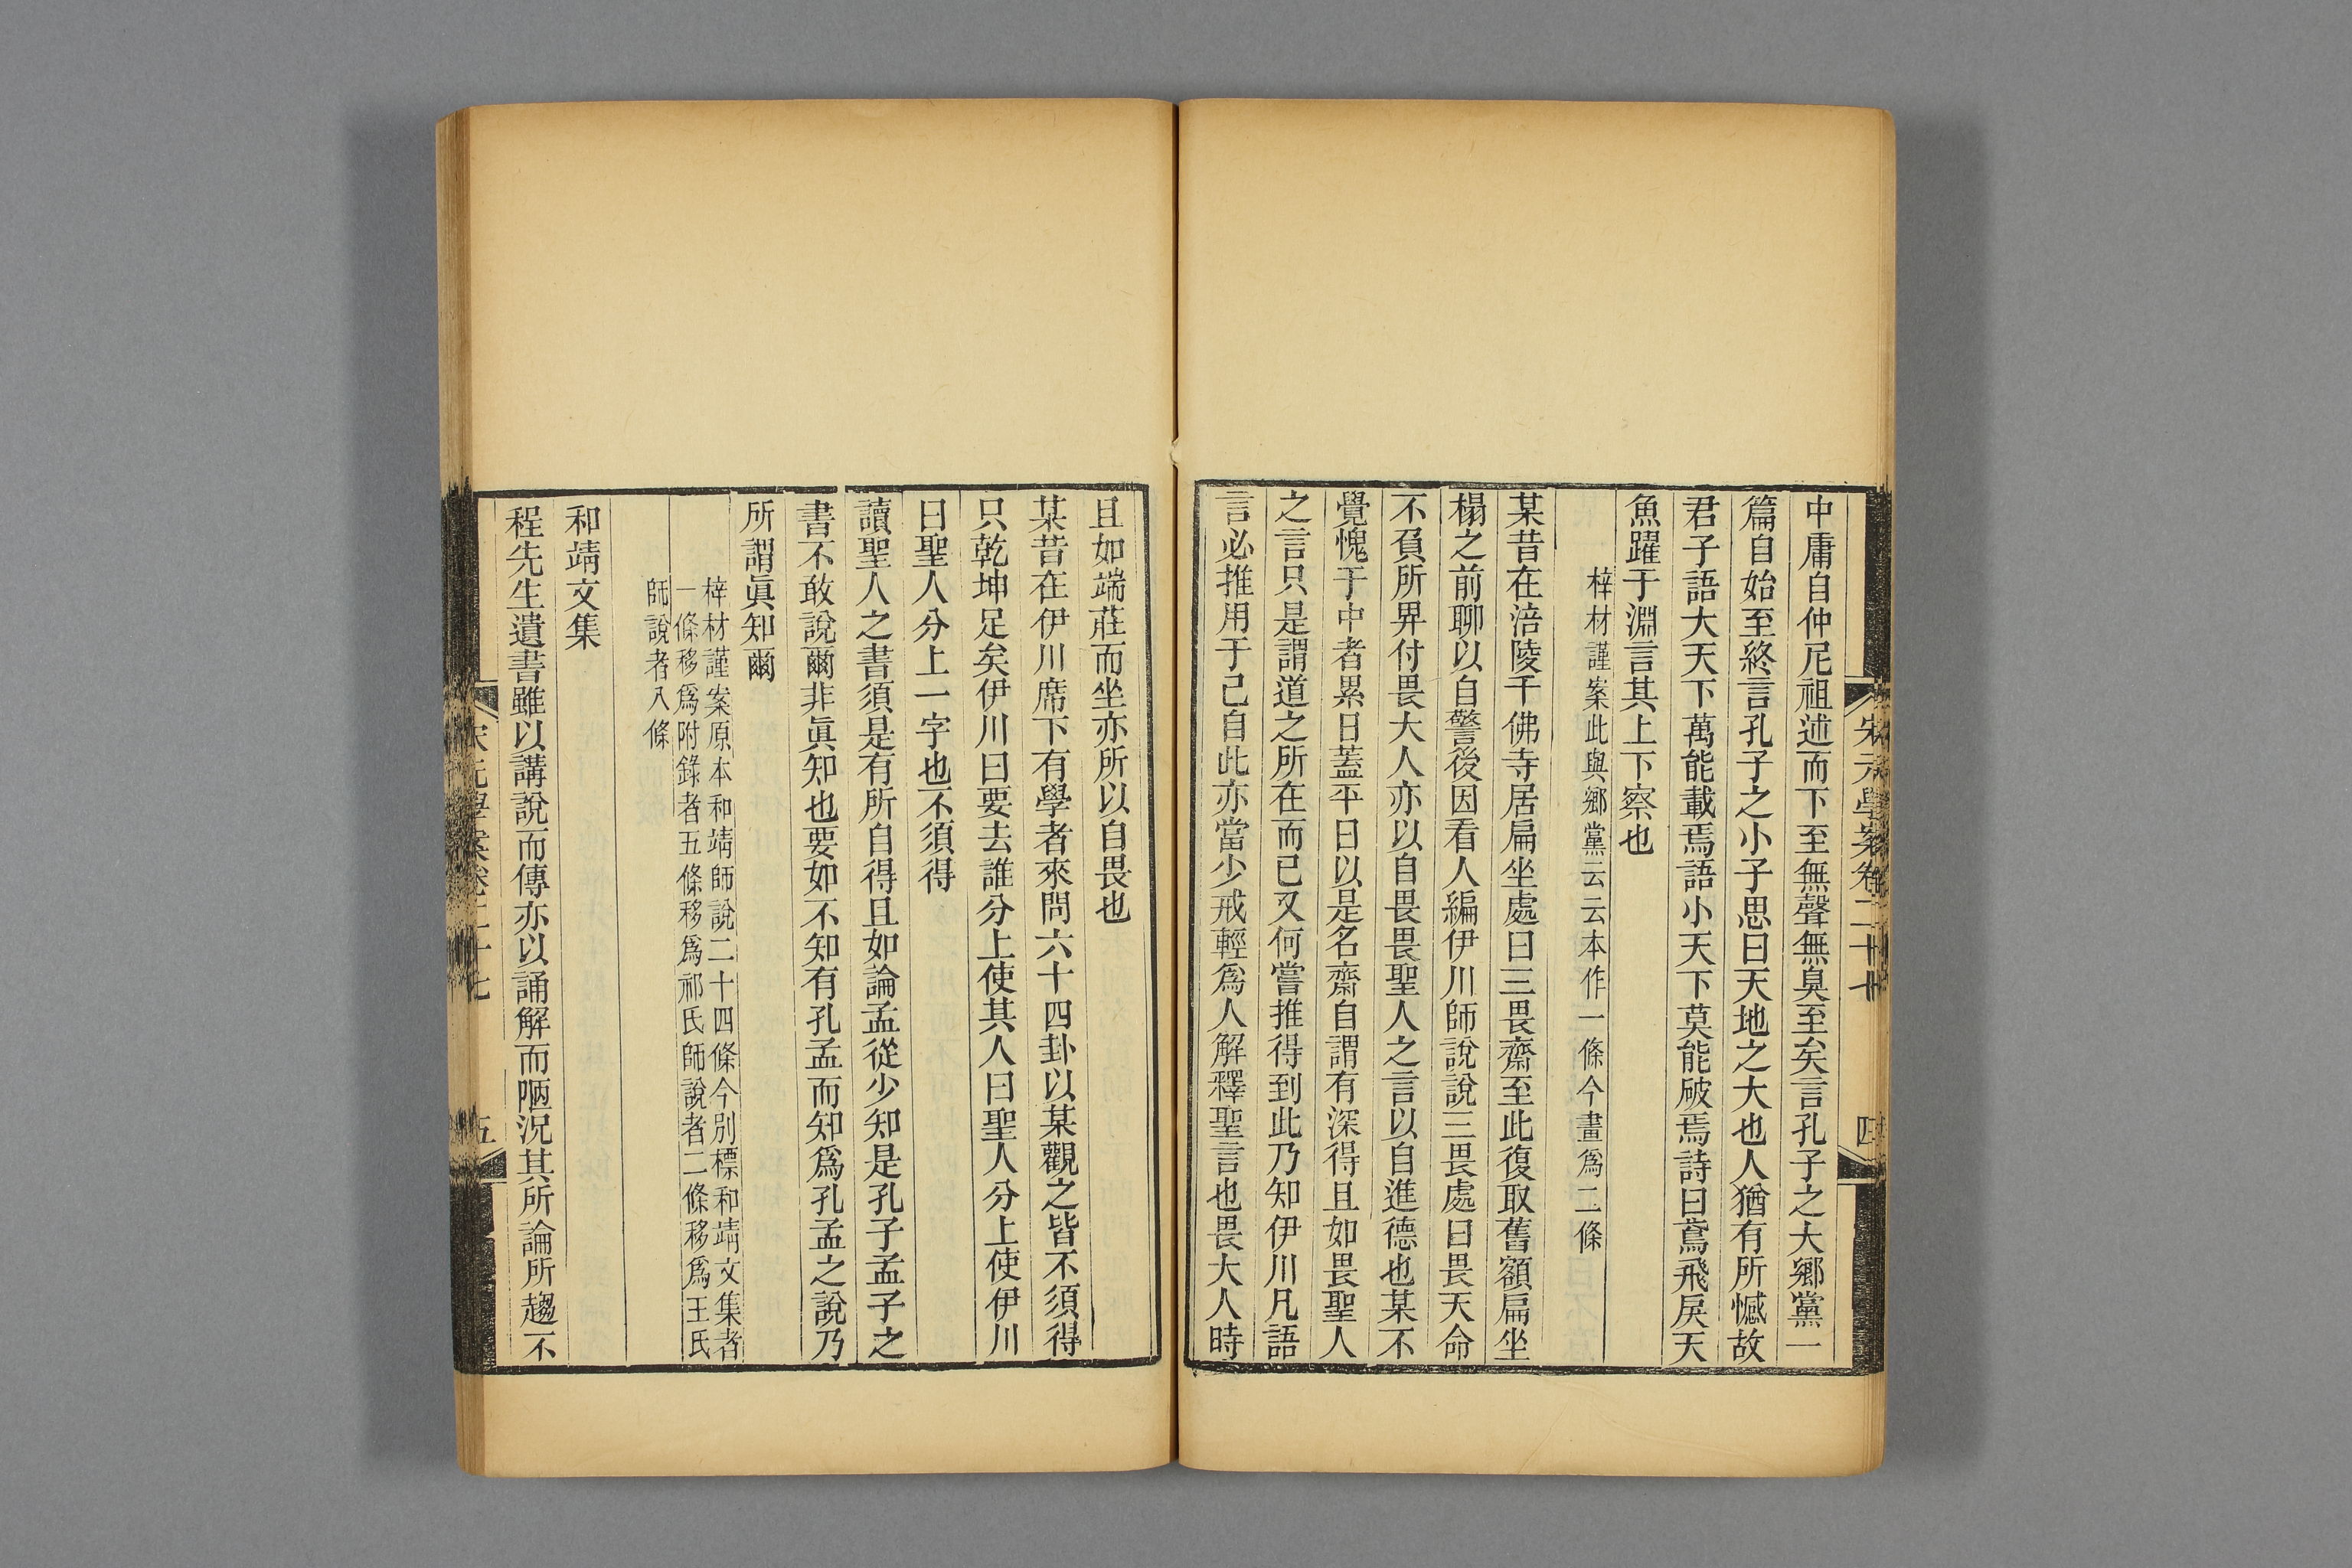 中庸自仲尼祖述而下至無聲無臭至矣言孔子之大鄉黨一
篇自始至終言孔子之小子思曰天地之大也人猶有所憾故
君子語大天下萬能載焉語小天下莫能破焉詩曰鳶飛戾天
魚躍于淵言其上下察也
梓材謹案此與鄉黨云云本作一條今畫爲二條
某昔在涪陵千佛寺居扁坐處曰三畏齋至此復取舊額扁坐
榻之前聊以自警後因看人編伊川師說說三畏處曰畏天命
不負所畀付畏大人亦以自畏畏聖人之言以自進德也某不
覺愧于中者累日蓋平日以是名齋自謂有深得且如畏聖人
之言只是謂道之所在而已又何嘗推得到此乃知伊川凡語
言必推用于己自此亦當少戒輕爲人解釋聖言也畏大人時
宋元學案卷二十七
四
且如端莊而坐亦所以自畏也
某昔在伊川席下有學者來問六十四卦以某觀之皆不須得
只乾坤足矣伊川曰要去誰分上使其人曰聖人分上使伊川
曰聖人分上一字也不須得
讀聖人之書須是有所自得且如論孟從少知是孔子孟子之
書不敢說爾非眞知也要如不知有孔孟而知爲孔孟之說乃
所謂眞知爾
梓材謹案原本和靖師說二十四條今別標和靖文集者
一條移爲附錄者五條移爲祁氏師說者二條移爲王氏
師說者八條
和靖文集
程先生遺書雖以講說而傳亦以誦解而陋況其所論所趨不
宋元學案卷二十七
五